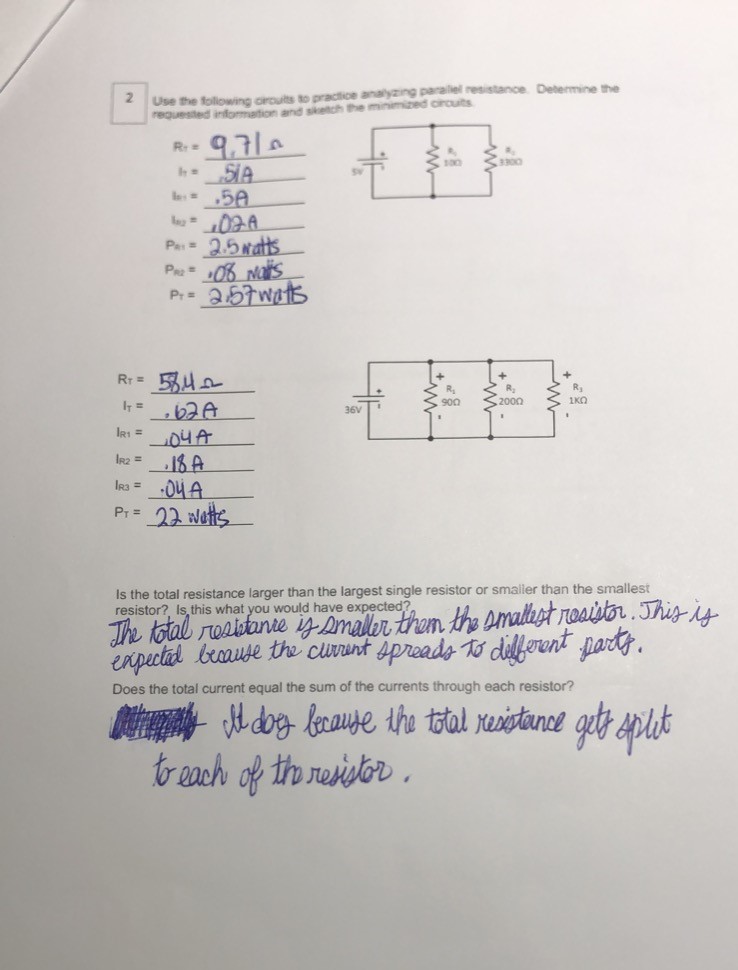 2
Use the following circuits to practice analyzing parallel resistance. Determine the
requested information and sketch the minimized circuits.
RT = 9.71 Ω
IT = .51A
IR1 = .5A
IR2 = .02A
PR1 = 2.5 watts
PR2 = .08 watts
PT = 2.57 watts
5V
R1
10Ω
R2
330Ω
RT = 58.4 Ω
IT = .62A
IR1 = .04 A
IR2 = .18 A
IR3 = .04 A
PT = 22 watts
36V
+
R1
90Ω
-
+
R2
200Ω
-
+
R3
1KΩ
-
Is the total resistance larger than the largest single resistor or smaller than the smallest
resistor? Is this what you would have expected?
The total resistance is smaller them the smallest resistor. This is
expected because the current spreads to different parts.
Does the total current equal the sum of the currents through each resistor?
It does because the total resistance gets split
to each of the resistor.